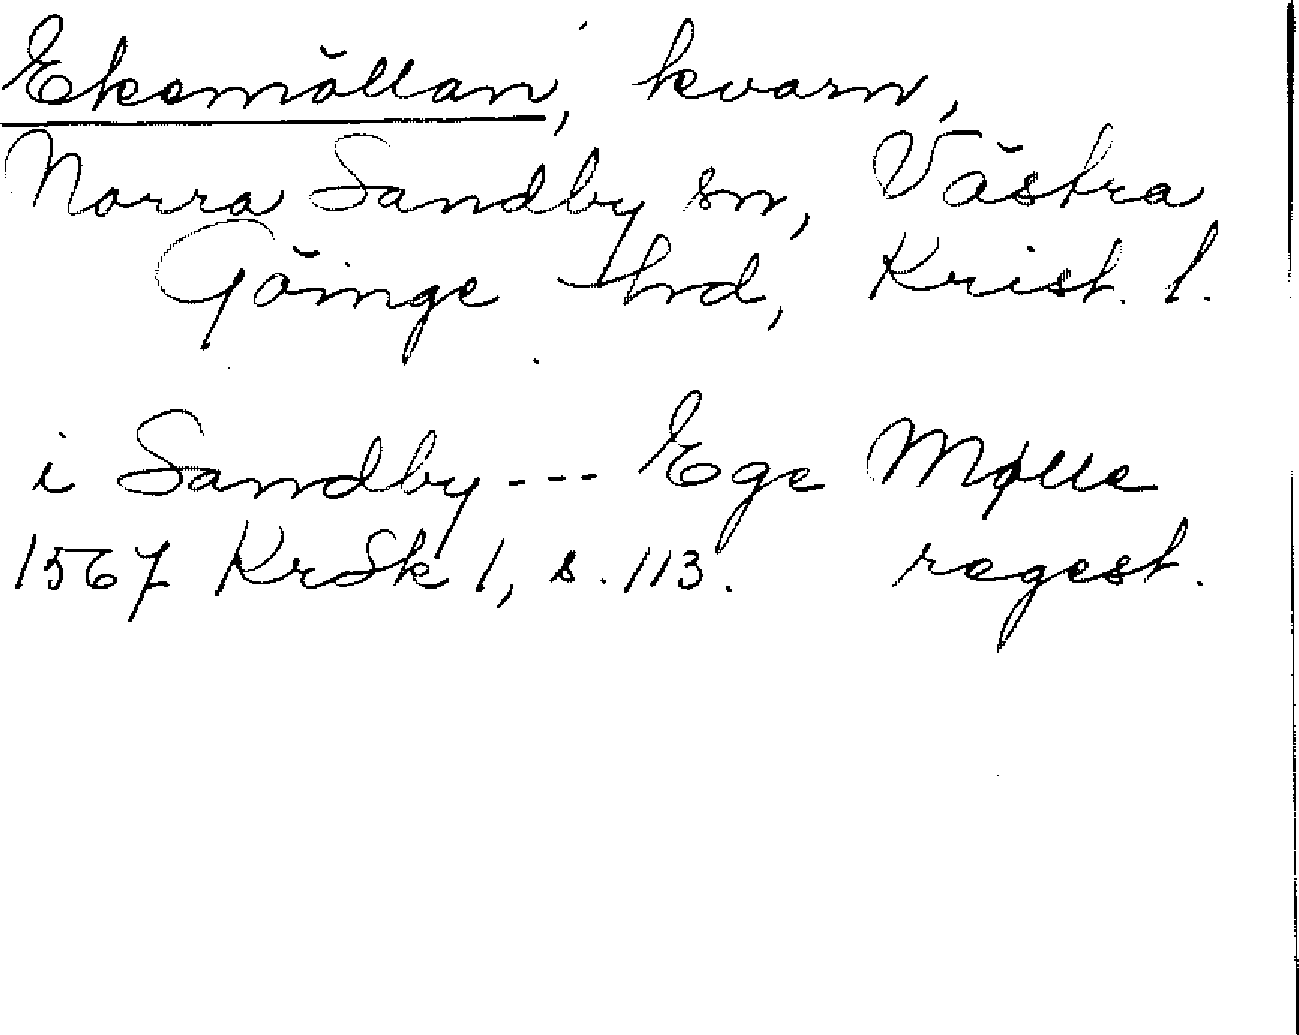 Ekemöllan, kvarn,
Norra Sandby sn, Västra
Göinge hrd, Krist. l.
i Sandby --- Ege Mølle
1567 KrSk 1, s. 113. regest.